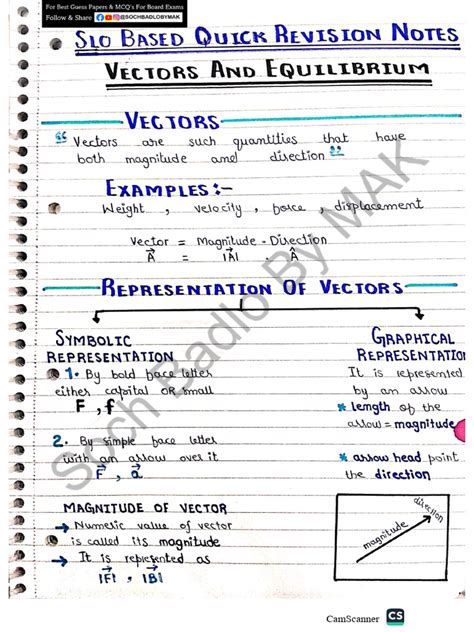 For Best Guess Papers & MCQ's For Board Exams
Follow & Share @SOCHBADLOBYMAK
SLO BASED QUICK REVISION NOTES
VECTORS AND EQUILIBRIUM
VECTORS
"Vectors are such quantities that have
both magnitude and direction"
EXAMPLES:-
Weight, velocity, force, displacement
Vector = Magnitude . Direction
A⃗ = |A⃗| . Â
REPRESENTATION OF VECTORS
SYMBOLIC
REPRESENTATION
1. By bold face letter
either capital OR small
F, f
2. By simple face letter
with an arrow over it
F⃗, a⃗
MAGNITUDE OF VECTOR
→ Numeric value of vector
is called its magnitude
→ It is represented as
|F⃗|, |B⃗|
GRAPHICAL
REPRESENTATION
It is represented
by an arrow
* length of the
arrow = magnitude
* arrow head point
the direction
magnitude
direction
Soch Badlo By MAK
CamScanner CS